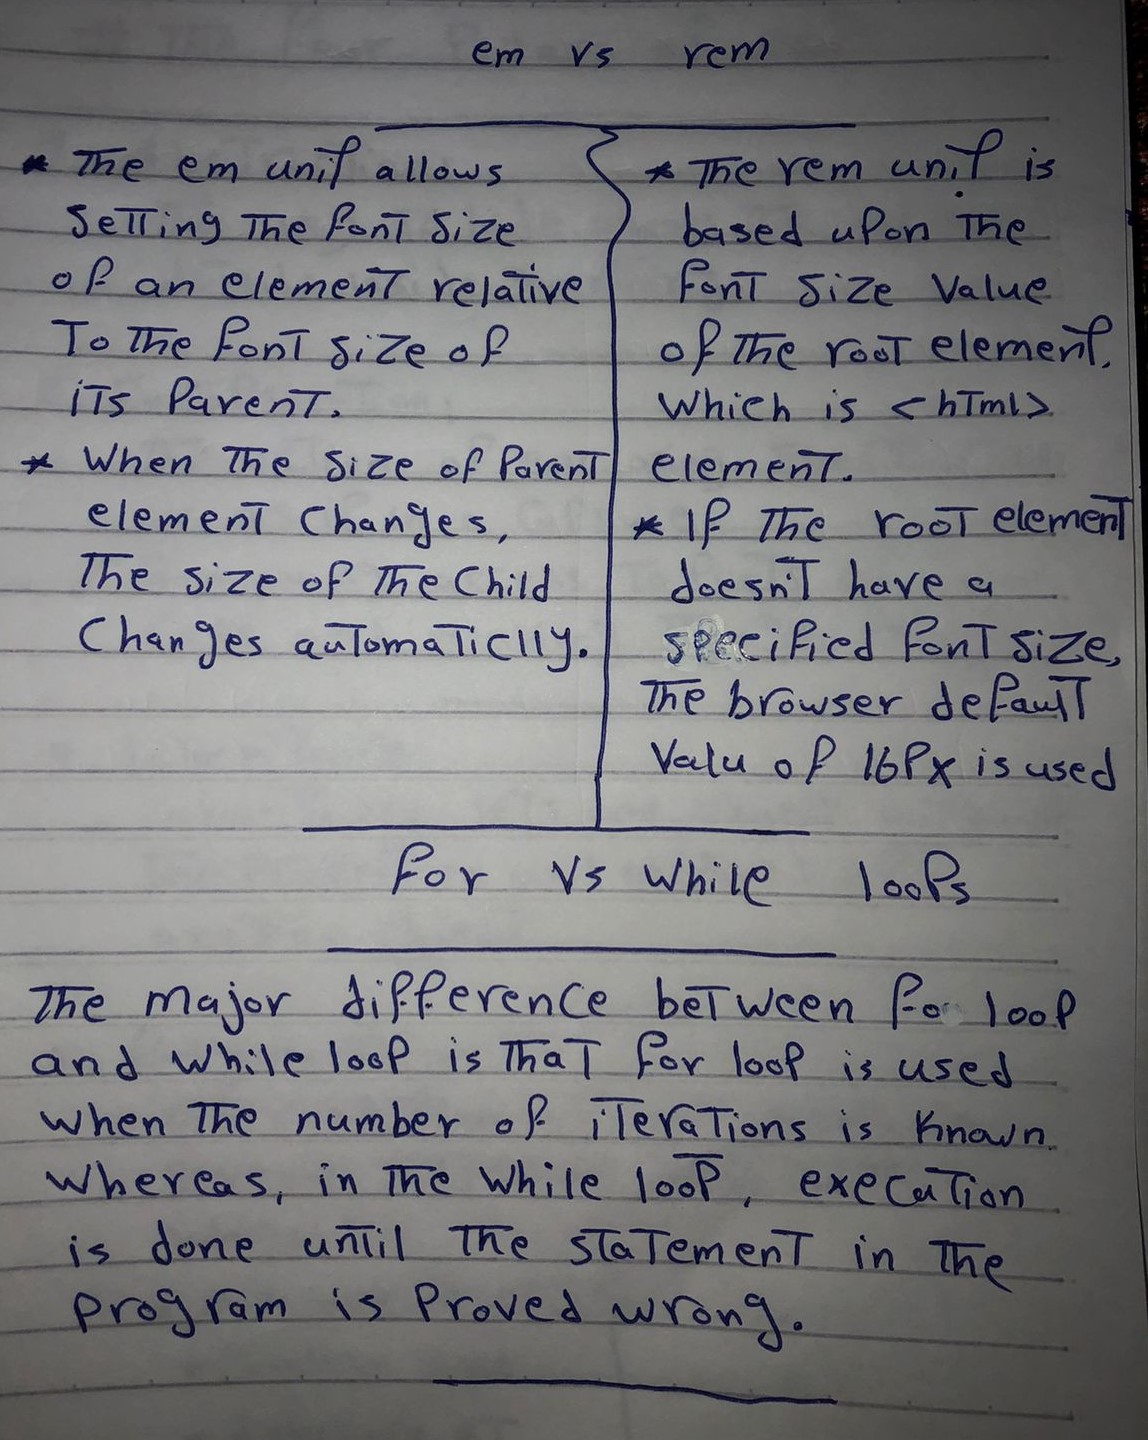 em vs rem
* The em unit allows
setting the font size
of an element relative
To the font size of
its Parent.
* When the size of Parent
element Changes,
The size of the Child
Changes automaticlly.
* The rem unit is
based upon the
font size Value
of the root element.
which is <html>
element.
* If the root element
doesn't have a
specified font size,
The browser default
Valu of 16Px is used
for Vs while loops
The major difference between fo loop
and while loop is that for loop is used
when the number of iterations is known
whereas, in the while loop, execution
is done until the statement in the
program is Proved wrong.